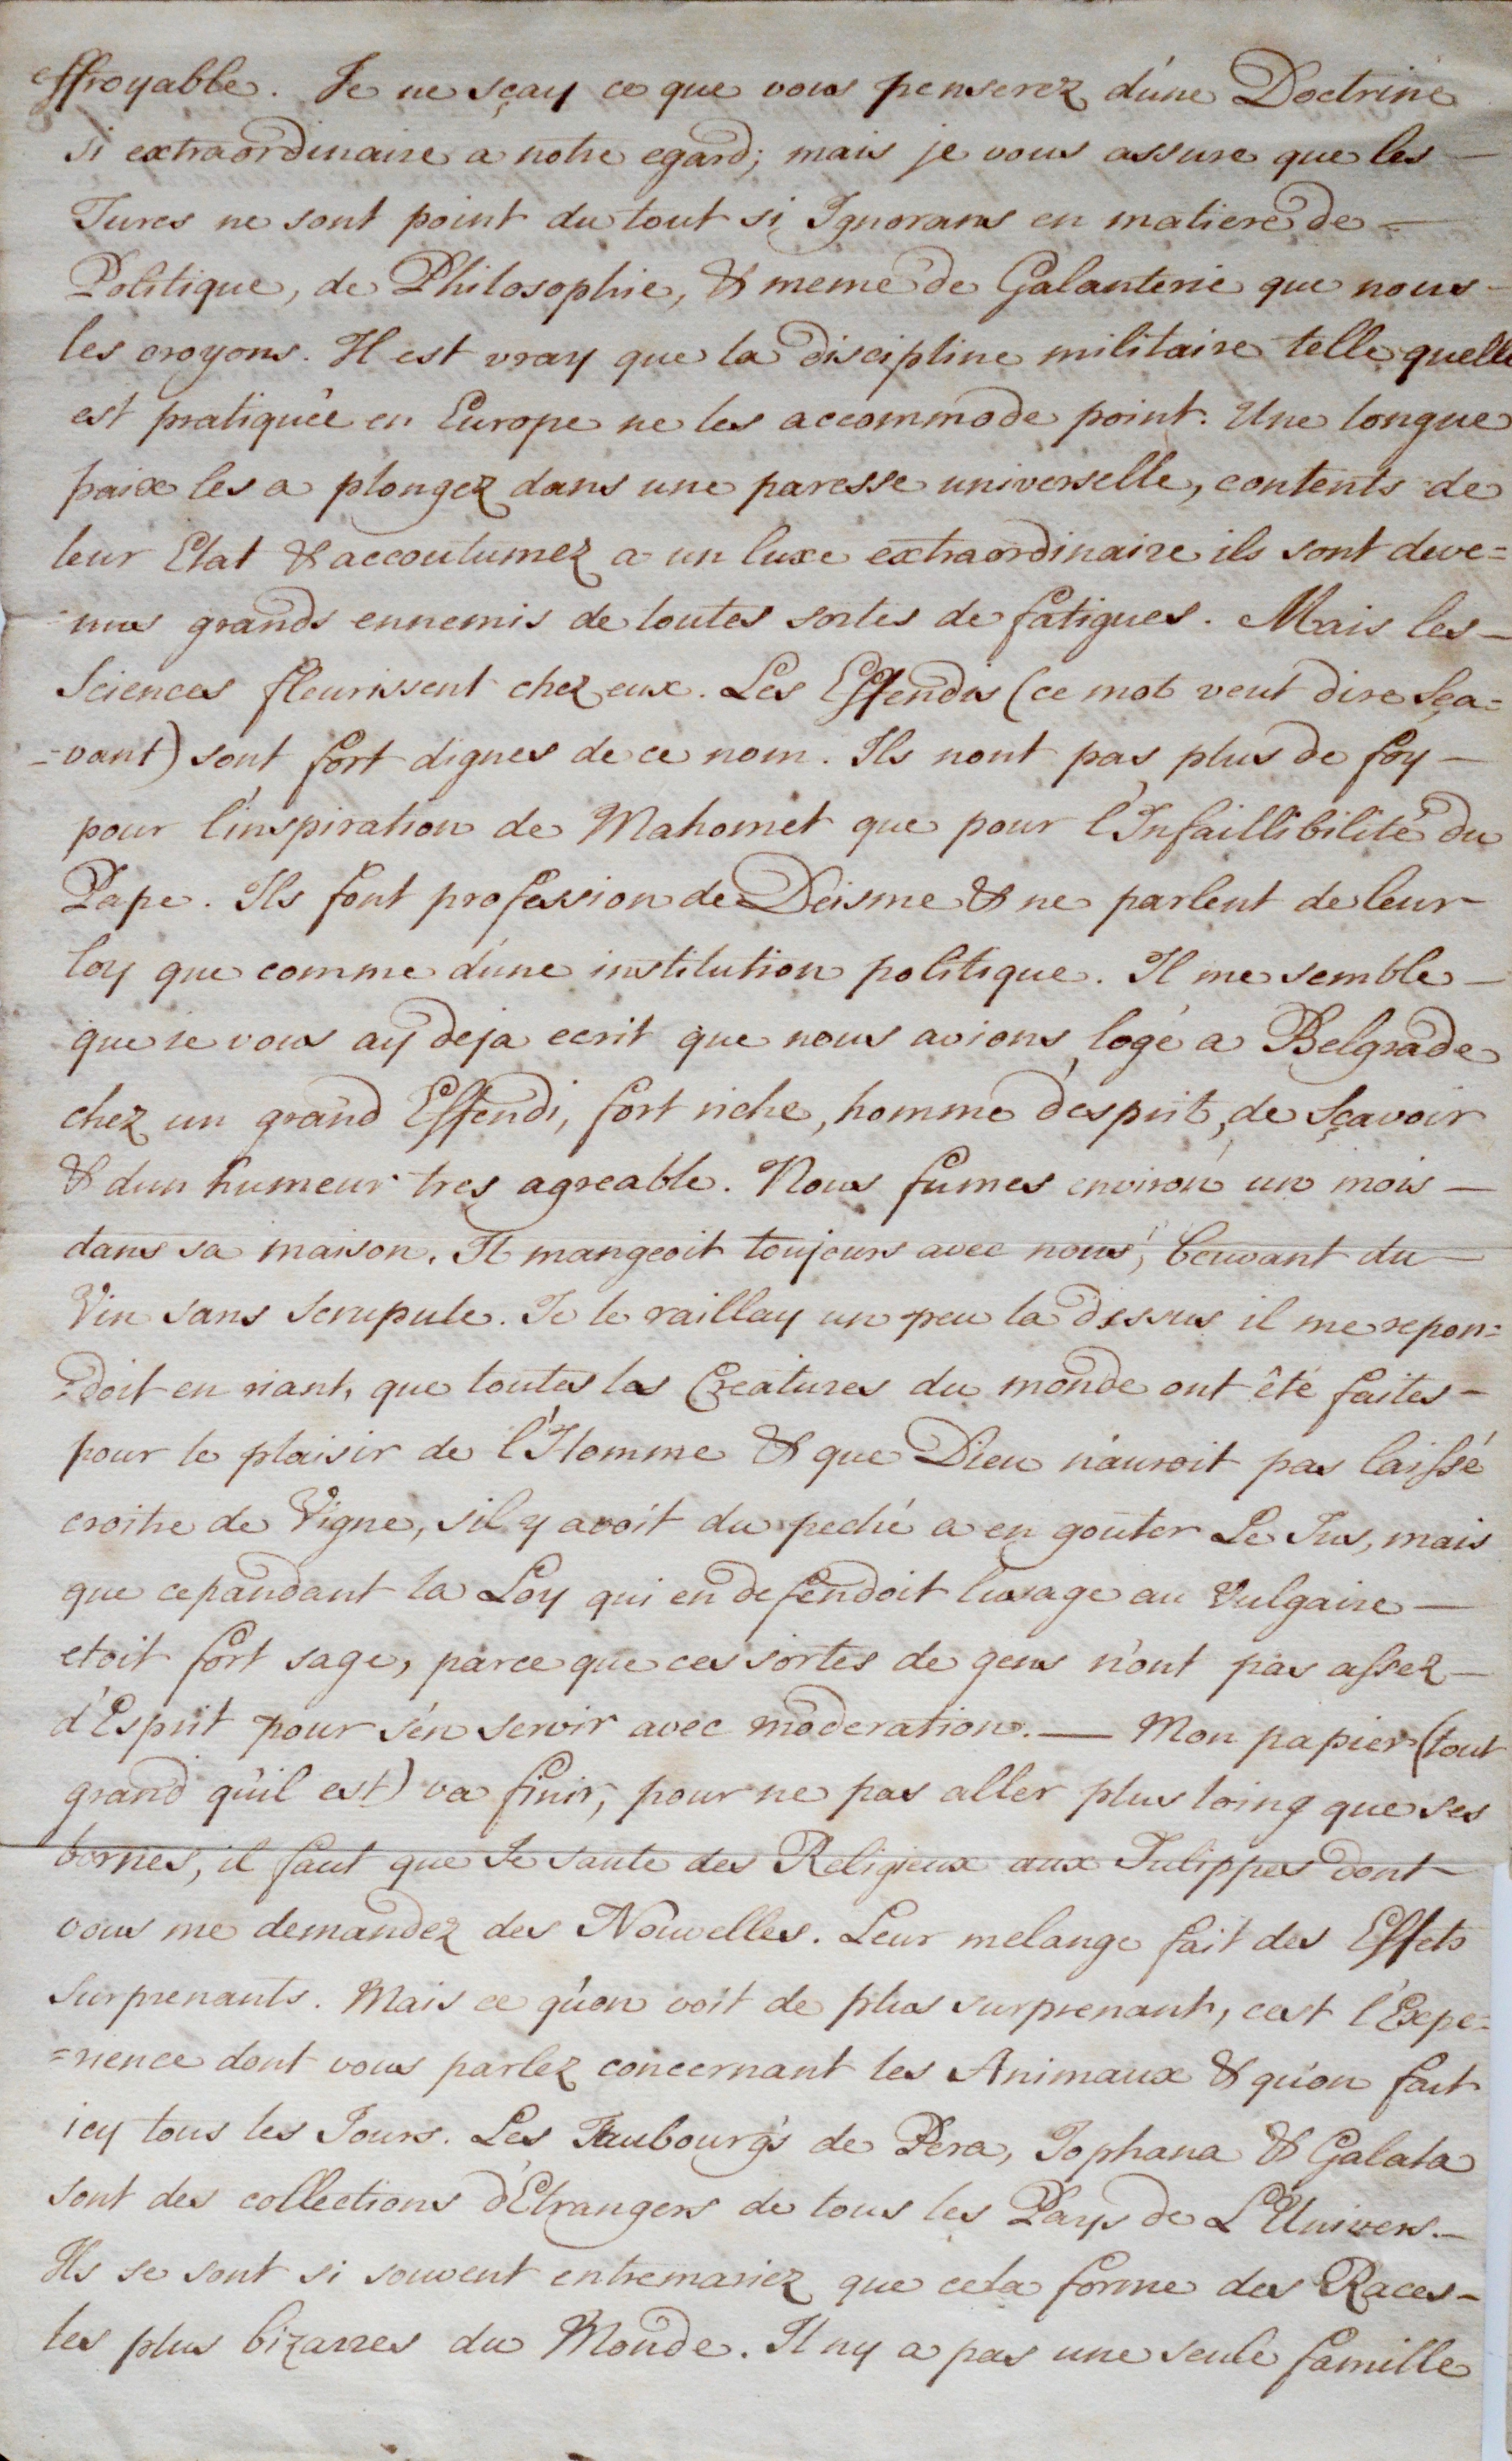 effroyable. Je ne sçay ce que vous penserez d'une Doctrine
si extraordinaire a notre egard; mais je vous assure que les —
Turcs ne sont point du tout si Ignorans en matiere de —
Politique, de Philosophie, & meme de Galanterie que nous —
les croyons. Il est vray que la discipline militaire telle quelle
est pratiquée en Europe ne les accommode point. Une longue
paix les a plongez dans une paresse universelle, contents de
leur Etat & accoutumez a un luxe extraordinaire ils sont deve=
nus grands ennemis de toutes sortes de fatigues. Mais les —
Sciences fleurissent chez eux. Les Effendis (ce mot veut dire Sça=
=vant) sont fort dignes de ce nom. Ils nont pas plus de foy —
pour l'inspiration de Mahomet que pour l'Infaillibilité du
Pape. Ils font profession de Deisme & ne parlent de leur —
loy que comme d'une institution politique. Il me semble —
que je vous ay deja ecrit que nous avions logé a Belgrade
chez un grand Effendi, fort riche, homme d'esprit, de Sçavoir
& dun humeur tres agreable. Nous fumes environ un mois —
dans sa maison. Il mangeoit toujours avec nous, beuvant du —
Vin sans Scrupule. Je le raillay un peu la dessus il me repon=
=doit en riant, que toutes les Creatures du monde ont été faites —
pour le plaisir de l'Homme & que Dieu n'auroit pas laissé
croitre de Vigne, sil y avoit du peché a en goûter Le Jus, mais
que cepandant la Loy qui en defendoit lusage au Vulgaire —
etoit fort sage, parce que ces sortes de gens n'ont pas assez —
d'Esprit pour s'en servir avec moderation. — Mon papier (tout
grand qu'il est) va finir, pour ne pas aller plus loing que ses
bornes, il faut que Je saute des Religieux aux Tulippes dont —
vous me demandez des Nouvelles. Leur melange fait des Effets
Surprenants. Mais ce qu'on voit de plus surprenant, cest l'Expe=
=rience dont vous parlez concernant les Animaux & qu'on fait
icy tous les Jours. Les Faubourgs de Pera, Jophana & Galata
sont des collections d'Etrangers de tous les Pays de L'Univers. —
Ils se sont si souvent entremariez que cela forme des Races —
les plus bizarres du Monde. Il ny a pas une seule famille